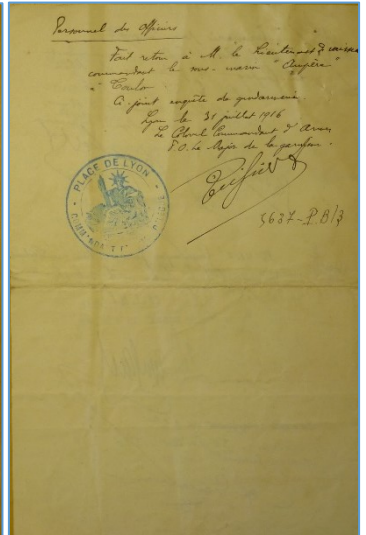 Personnel des Officiers
Fait retour à M. le Lieutenant de vaisseau
commandant le sous-marin "Ampère"
à Toulon
Ci-joint enquête de gendarmerie.
Lyon le 31 juillet 1916
Le Colonel Commandant d'Armes
P.O. Le Major de la garnison.
PLACE DE LYON
5637-P.B/3